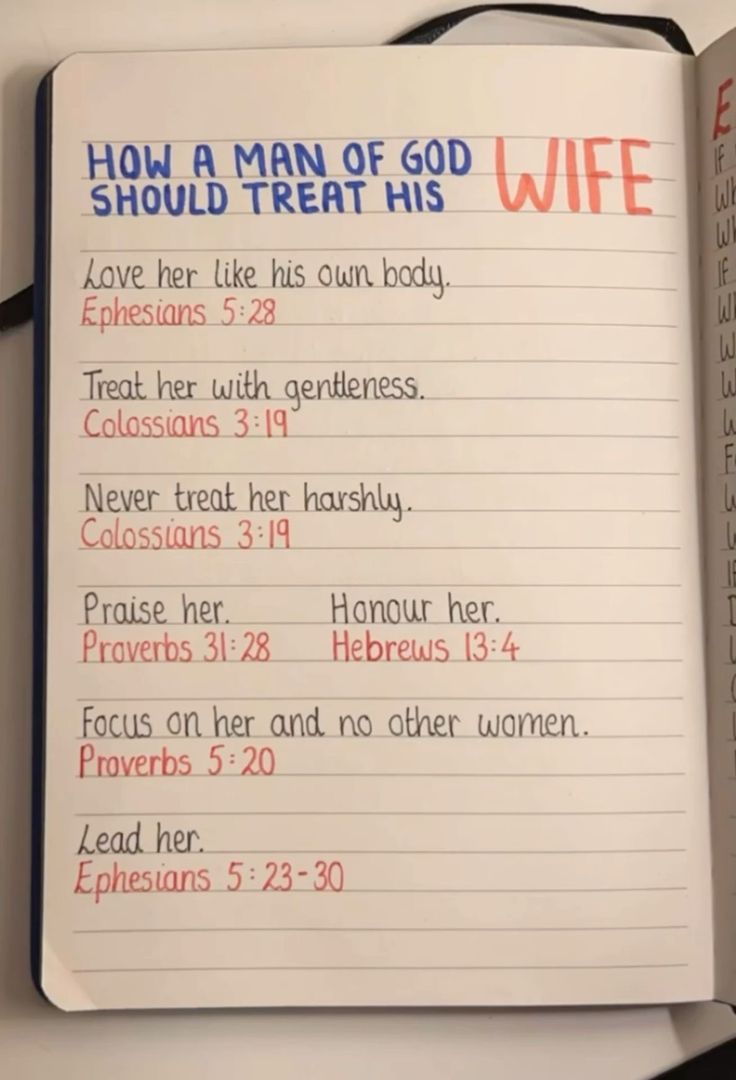 HOW A MAN OF GOD
SHOULD TREAT HIS WIFE
Love her like his own body.
Ephesians 5:28
Treat her with gentleness.
Colossians 3:19
Never treat her harshly.
Colossians 3:19
Praise her. Honour her.
Proverbs 31:28 Hebrews 13:4
Focus on her and no other women.
Proverbs 5:20
Lead her.
Ephesians 5:23-30
E
If
Wh
Wh
If